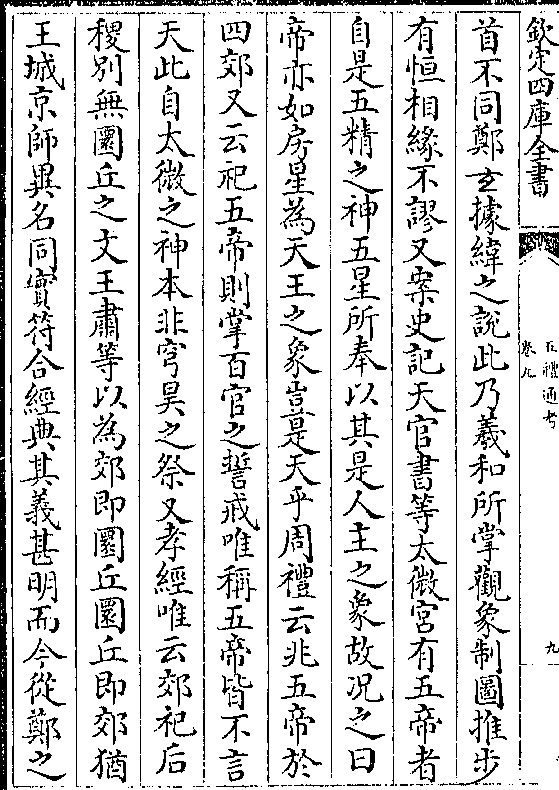 欽定四庫全書
五禮通考
卷九
九
首不同鄭玄據緯之說此乃羲和所掌觀象制圖推步
有恒相緣不謬又案史記天官書等太微宮有五帝者
自是五精之神五星所奉以其是人主之象故況之曰
帝亦如房星為天王之象豈是天乎周禮云兆五帝於
四郊又云祀五帝則掌百官之誓戒唯稱五帝皆不言
天此自太微之神本非穹昊之祭又孝經唯云郊祀后
稷別無圜丘之文王肅等以為郊即圜丘圜丘即郊猶
王城京師異名同實符合經典其義甚明而今從鄭之